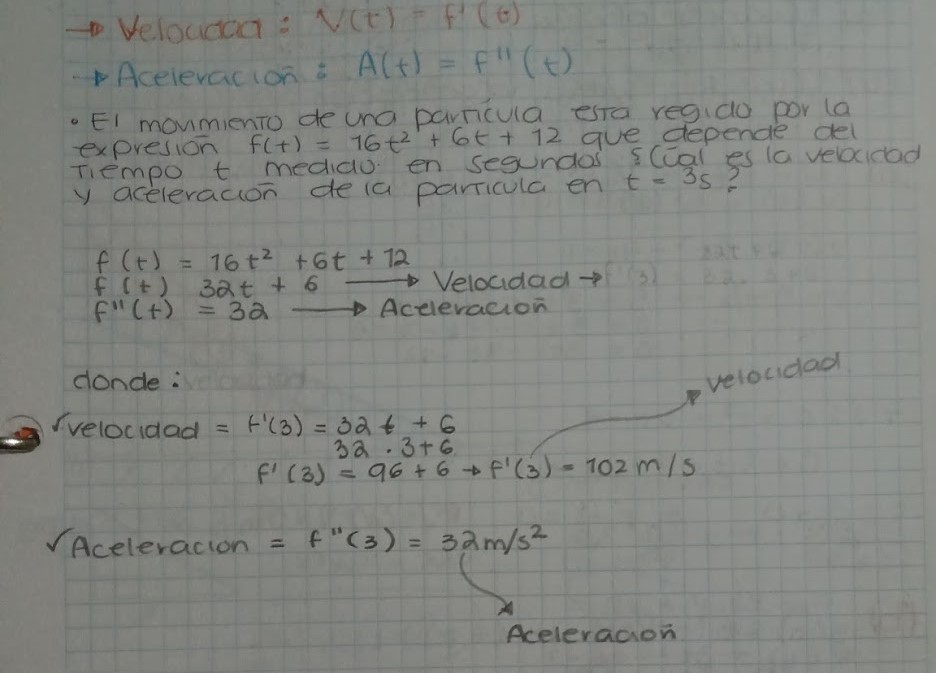 → Velocidad : V(t) = f'(t)
→ Aceleración : A(t) = f''(t)
• El movimiento de una partícula esta regido por la
expresión f(t) = 16t² + 6t + 12 que depende del
Tiempo t medido en segundos ¿Cúal es la velocidad
y aceleración de la particula en t = 3s?
f(t) = 16t² + 6t + 12
f(t) 32t + 6 → Velocidad → f'(3)
f''(t) = 32 → Aceleración
donde :
velocidad
✓velocidad = f'(3) = 32t + 6
32 . 3 + 6
f'(3) = 96 + 6 → f'(3) = 102 m/s
✓Aceleracion = f''(3) = 32m/s²
Aceleración